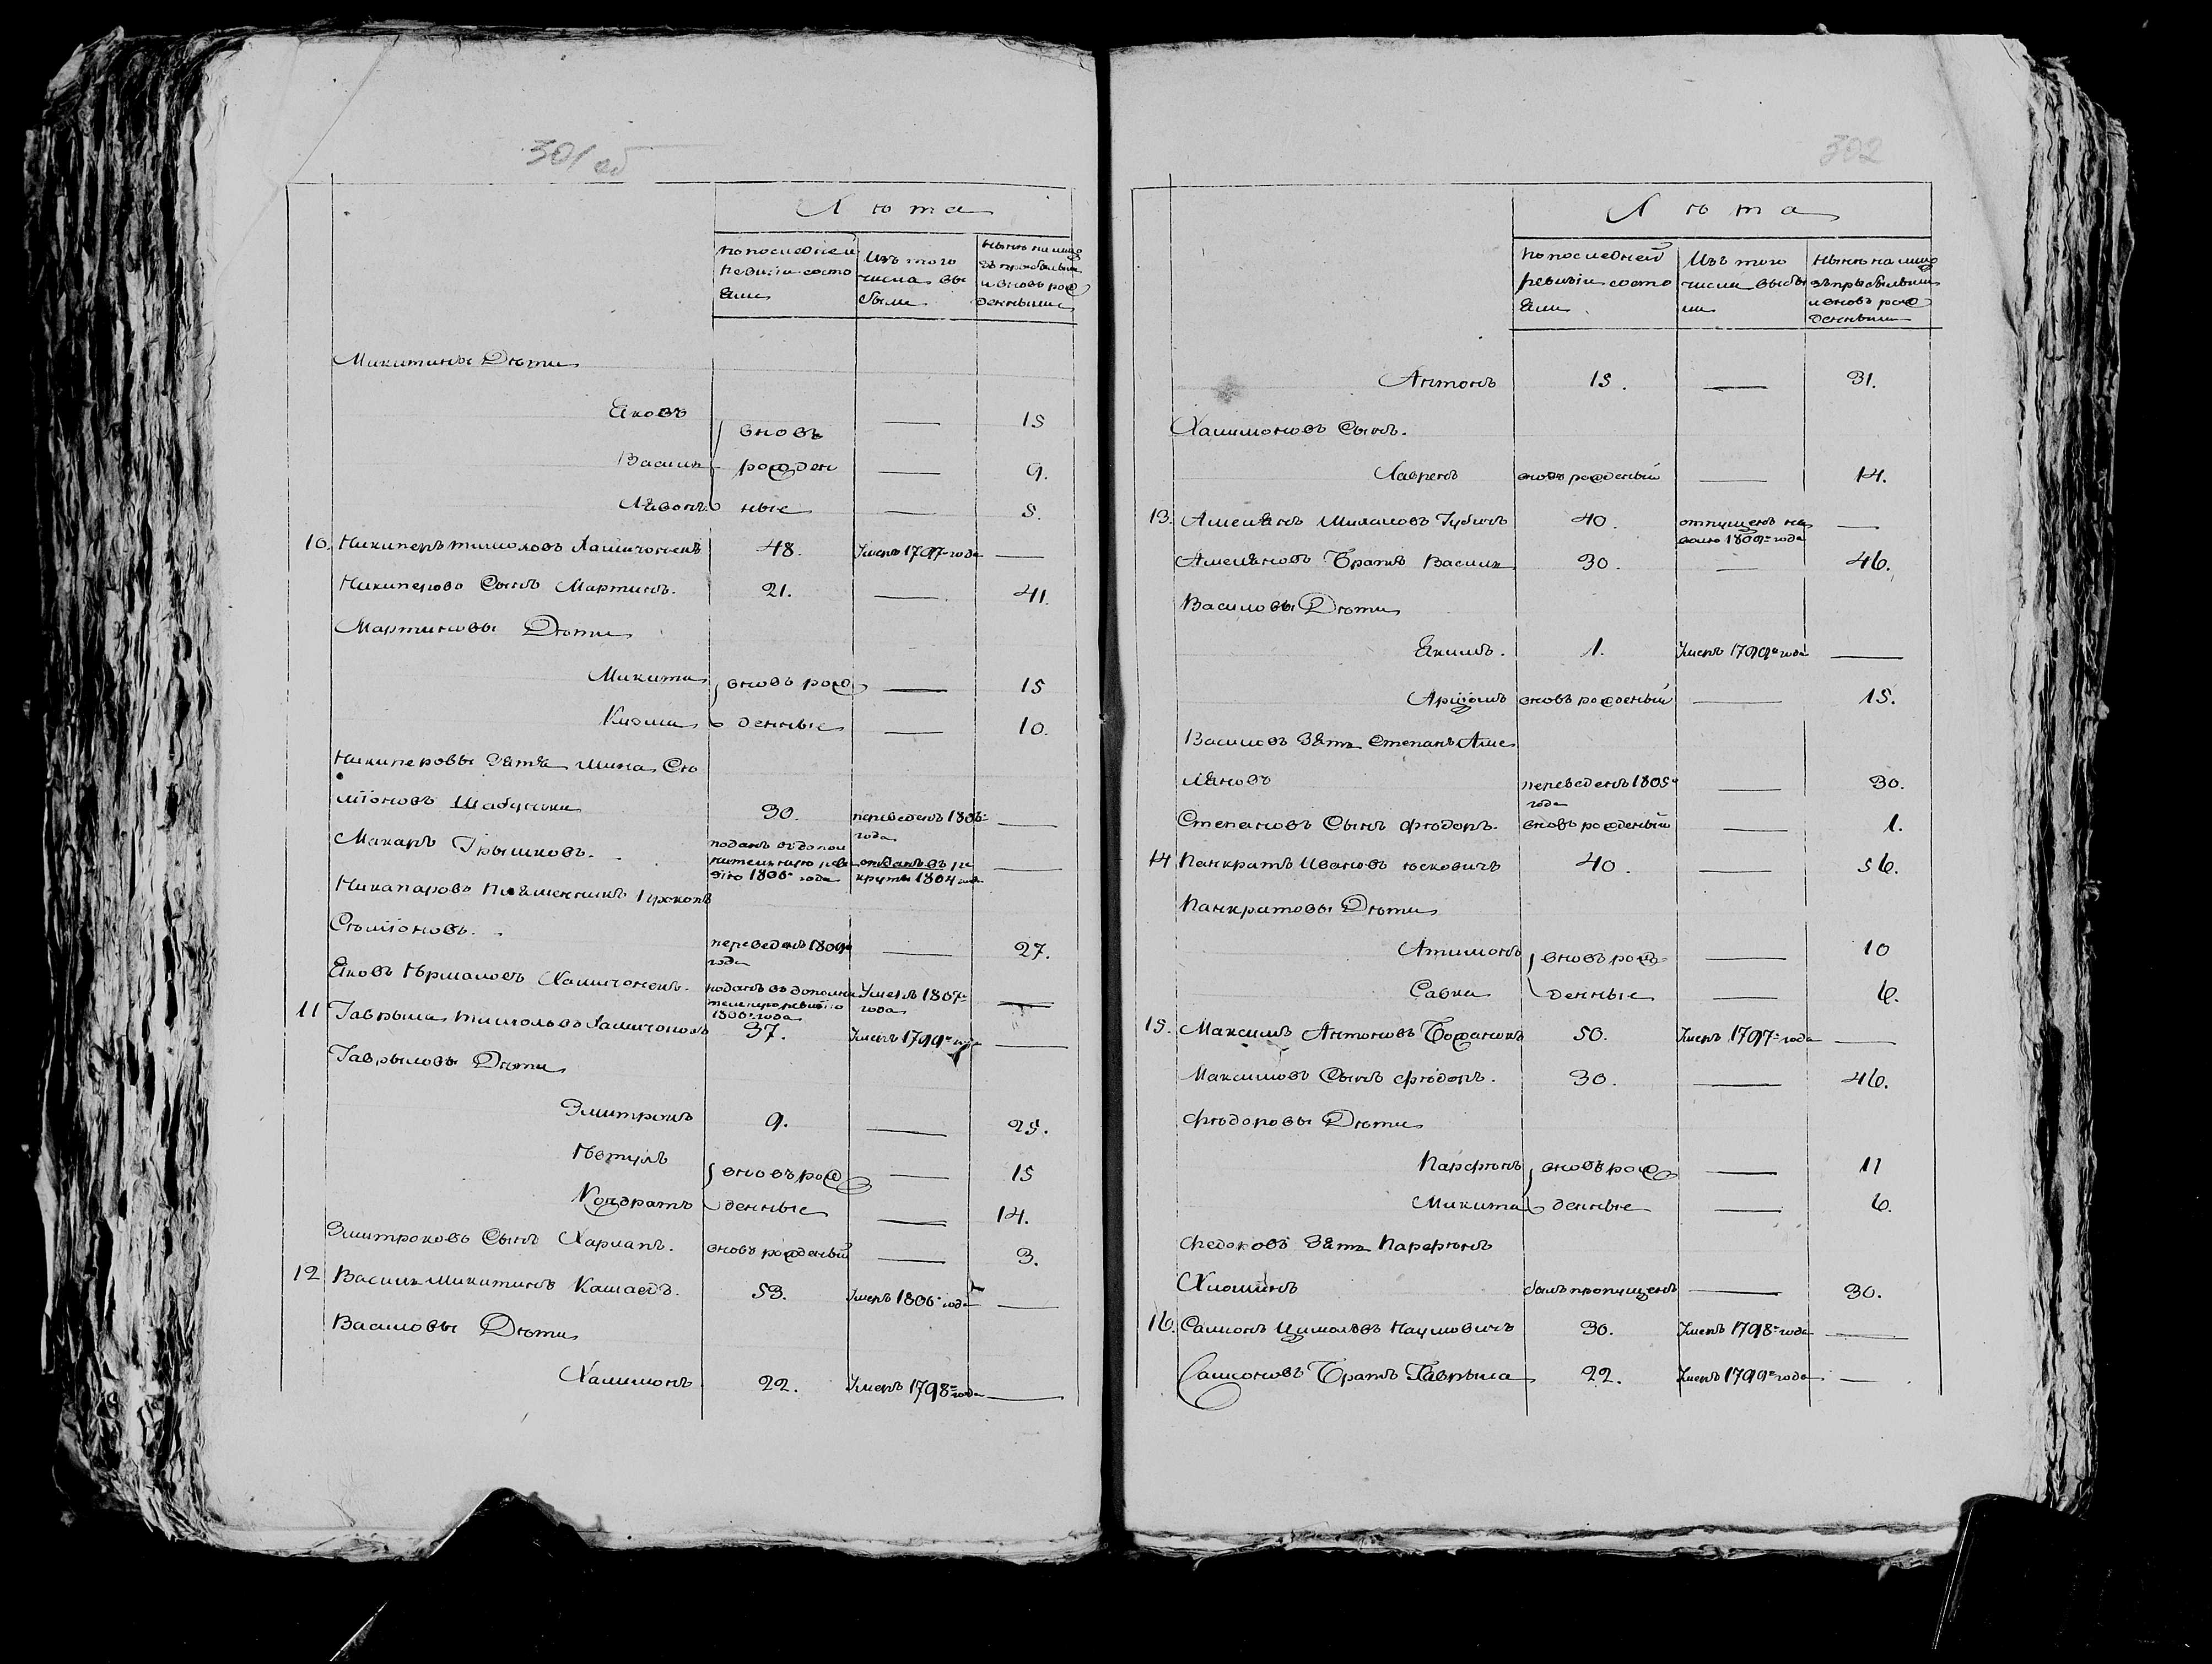 301 об
Лѣта
по последней
ревизіи состо
яли
Изъ того
числа вы
были
Нынѣ на лицо
зъ прибылыми
и вновъ рож
денными
Микитины Дѣти
Яковъ — 15
вновъ
Василь рожден — 9.
Лявонъ ные — 5.
10. Никиперъ 48. Умеръ 1797 года —
Никиперовъ Сынъ Мартинъ. 21. — 41.
Мартиновы Дѣти
Микита вновъ рож — 15
Клима денные — 10.
Никиперовы Зятя Мина Сѣ
міоновъ 30. переведенъ 1806
года —
Макаръ Грышковъ. поданъ въ допол
нительную реви отданъ въ ре
зію 1806 года круты 1804 года —
Никапаровъ Племенникъ Прокопъ
Сѣміоновъ. переведенъ 1809 — 27.
года
Яковъ поданъ въ дополни Умеръ 1807
тельную ревизію года —
1806 года
11 Гаврыла 37. Умеръ 1799 года —
Гаврыловы Дѣти
Змитрокъ 9. — 25.
Пѣтулъ вновъ рож — 15
Кондратъ денные — 14.
Змитроковъ Сынъ Харлапъ. вновъ рожденый — 3.
12 Василь Микитинъ Кашаедъ. 53. Умеръ 1806 года —
Василовы Дѣти
Халимонъ 22. Умеръ 1798 года —
302
Лѣта
по последней
ревизіи состо
яли
Изъ того
числа выбы
ли
Нынѣ на лицо
зъ прибылыми
и вновъ рож
денными
Антонъ 15. — 31.
Халимоновъ Сынъ.
Лавренъ вновъ рожденый — 14.
13. Амельянъ Михаловъ Губинъ 40. отпущенъ на —
волю 1809 года
Амеляновъ Братъ Василь 30. — 46.
Василовы Дѣти
Якимъ. 1. Умеръ 1799 года —
Арціомъ вновъ рожденый — 15.
Василовъ Зять Степанъ Аме
ляновъ переведенъ 1805 — 30.
года
Степановъ Сынъ Фѣдоръ. вновъ рожденый — 1.
14 Панкратъ Ивановъ 40. — 56.
Панкратовы Дѣти
Атимонъ вновъ рож — 10
Савка денные — 6.
15. Максимъ Антоновъ Божанокъ 50. Умеръ 1797 года —
Максимовъ Сынъ Фѣдоръ. 30. — 46.
Фѣдоровы Дѣти
Парфѣнъ вновъ рож — 11
Микита денные — 6.
Зять Парфѣнъ
былъ пропущенъ — 30.
16. Самонъ Цимоховъ Наумовичъ 30. Умеръ 1798 года —
Самоновъ Братъ Гаврыла 22. Умеръ 1799 года —